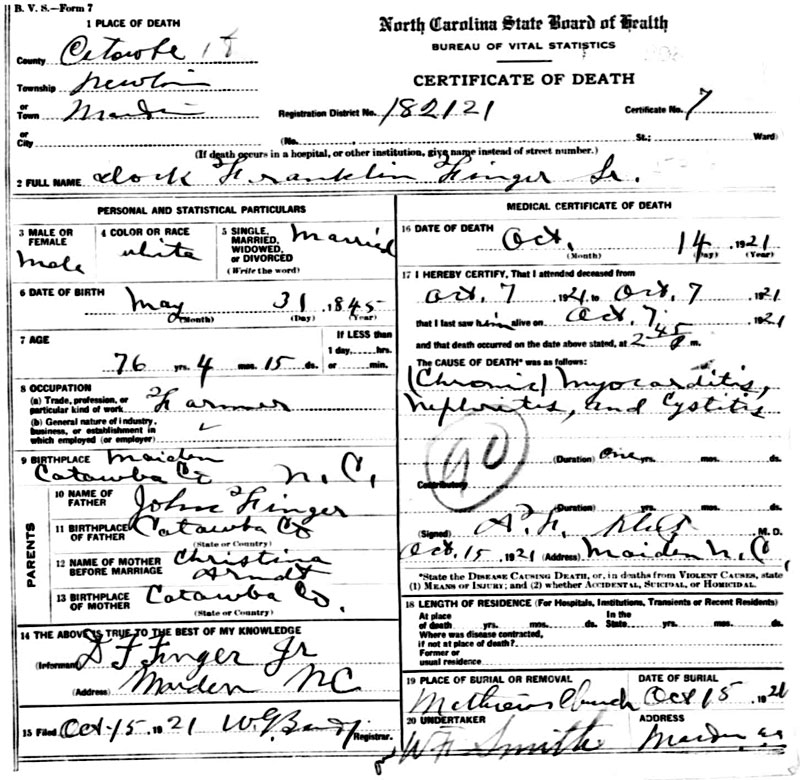 B. V. S.—Form 7
1 PLACE OF DEATH
County Catawba 18
Township Newton
or
Town Maiden
or
City
North Carolina State Board of Health
BUREAU OF VITAL STATISTICS
CERTIFICATE OF DEATH
Registration District No. 182121 Certificate No. 7
(No. , St.; Ward)
(If death occurs in a hospital, or other institution, give name instead of street number.)
2 FULL NAME Dock Franklin Finger Sr.
PERSONAL AND STATISTICAL PARTICULARS
3 MALE OR FEMALE
Male
4 COLOR OR RACE
white
5 SINGLE, MARRIED, WIDOWED, or DIVORCED
(Write the word)
Married
6 DATE OF BIRTH
May 31 1845
(Month) (Day) (Year)
7 AGE
76 yrs. 4 mos. 15 ds.
If LESS than
1 day, hrs.
or min.
8 OCCUPATION
(a) Trade, profession, or
particular kind of work Farmer
(b) General nature of industry,
business, or establishment in
which employed (or employer)
9 BIRTHPLACE Maiden
Catawba Co N. C.
PARENTS
10 NAME OF
FATHER John Finger
11 BIRTHPLACE
OF FATHER Catawba Co
(State or Country)
12 NAME OF MOTHER
BEFORE MARRIAGE Christina
Arndt
13 BIRTHPLACE
OF MOTHER Catawba Co.
(State or Country)
14 THE ABOVE IS TRUE TO THE BEST OF MY KNOWLEDGE
(Informant) D F Finger Jr
(Address) Maiden NC
15 Filed Oct-15 1921 W.G. Registrar.
MEDICAL CERTIFICATE OF DEATH
16 DATE OF DEATH
Oct. 14 1921
(Month) (Day) (Year)
17 I HEREBY CERTIFY, That I attended deceased from
Oct. 7 1921 to Oct. 7 1921
that I last saw him alive on Oct. 7 1921
and that death occurred on the date above stated, at 2 45 P. m.
The CAUSE OF DEATH* was as follows:
(Chronic) Myocarditis,
Nephritis, and Cystitis
90
(Duration) One yrs. mos. ds.
Contributory
(Duration) yrs. mos. ds.
(Signed) A. F. M. D.
Oct. 15 1921 (Address) Maiden N. C.
*State the DISEASE CAUSING DEATH, or, in deaths from VIOLENT CAUSES, state
(1) MEANS OF INJURY; and (2) whether ACCIDENTAL, SUICIDAL, or HOMICIDAL.
18 LENGTH OF RESIDENCE (For Hospitals, Institutions, Transients or Recent Residents)
At place
of death yrs. mos. ds.
In the
State yrs. mos. ds.
Where was disease contracted,
if not at place of death?
Former or
usual residence
19 PLACE OF BURIAL OR REMOVAL
Mathews Church
DATE OF BURIAL
Oct 15 1921
20 UNDERTAKER
Smith
ADDRESS
Maiden